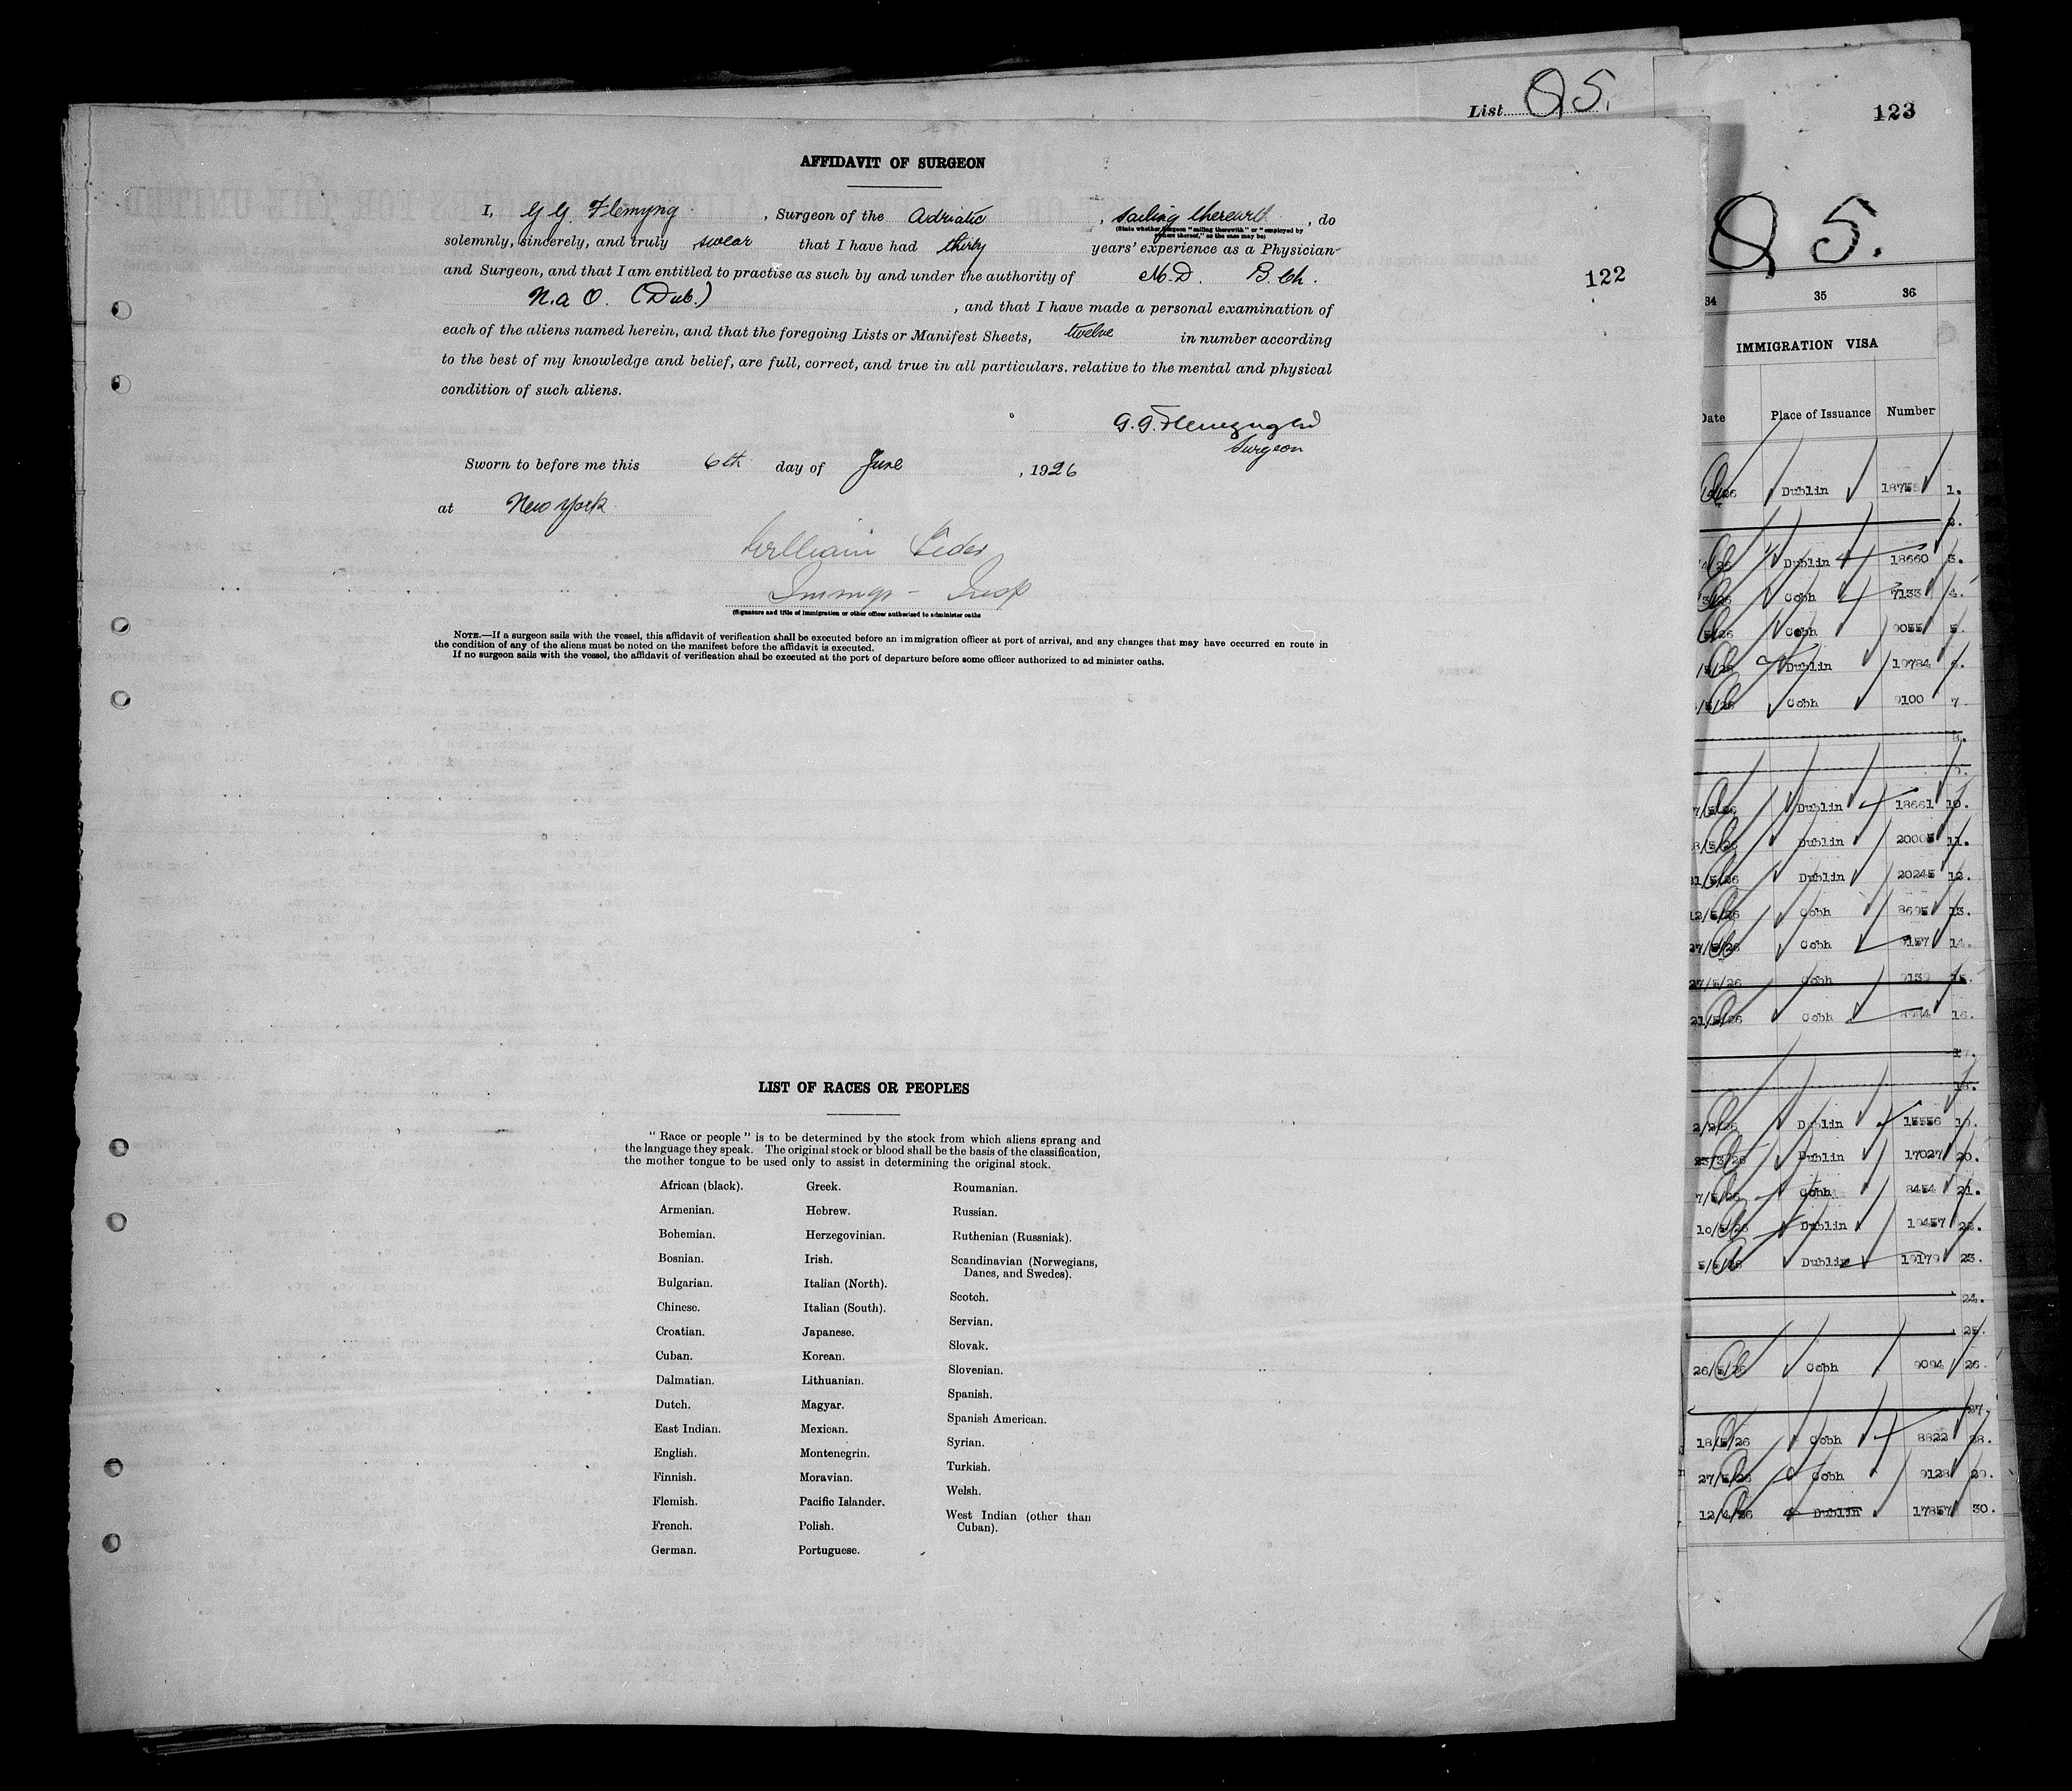 List Q 5.
123
AFFIDAVIT OF SURGEON
I, G G. Flemyng , Surgeon of the Adriatic , sailing therewith , do
(State whether Surgeon "sailing therewith" or "employed by
owners thereof," as the case may be)
solemnly, sincerely, and truly swear that I have had thirty years' experience as a Physician
and Surgeon, and that I am entitled to practise as such by and under the authority of M.D. B.Ch.
(Dub.) , and that I have made a personal examination of
each of the aliens named herein, and that the foregoing Lists or Manifest Sheets, twelve in number according
to the best of my knowledge and belief, are full, correct, and true in all particulars, relative to the mental and physical
condition of such aliens.
G. G. Flemyng
Surgeon
Sworn to before me this 6th day of June , 1926
at New York
William
Immigr - Insp
(Signature and title of immigration or other officer authorized to administer oaths
NOTE.—If a surgeon sails with the vessel, this affidavit of verification shall be executed before an immigration officer at port of arrival, and any changes that may have occurred en route in
the condition of any of the aliens must be noted on the manifest before the affidavit is executed.
If no surgeon sails with the vessel, the affidavit of verification shall be executed at the port of departure before some officer authorized to ad minister oaths.
122
LIST OF RACES OR PEOPLES
"Race or people" is to be determined by the stock from which aliens sprang and
the language they speak. The original stock or blood shall be the basis of the classification,
the mother tongue to be used only to assist in determining the original stock.
African (black).
Armenian.
Bohemian.
Bosnian.
Bulgarian.
Chinese.
Croatian.
Cuban.
Dalmatian.
Dutch.
East Indian.
English.
Finnish.
Flemish.
French.
German.
Greek.
Hebrew.
Herzegovinian.
Irish.
Italian (North).
Italian (South).
Japanese.
Korean.
Lithuanian.
Magyar.
Mexican.
Montenegrin.
Moravian.
Pacific Islander.
Polish.
Portuguese.
Roumanian.
Russian.
Ruthenian (Russniak).
Scandinavian (Norwegians,
Danes, and Swedes).
Scotch.
Servian.
Slovak.
Slovenian.
Spanish.
Spanish American.
Syrian.
Turkish.
Welsh.
West Indian (other than
Cuban).
Q 5.
34 35 36
IMMIGRATION VISA
Date Place of Issuance Number
Dublin 1.
2.
Dublin 18660 3.
Cobh 7133 4.
Cobh 9055 5.
Dublin 19784 6.
Cobh 9100 7.
8.
9.
Dublin 18661 10.
Dublin 20005 11.
Dublin 20245 12.
12/5/26 Cobh 8695 13.
27/5/26 Cobh 9157 14.
27/5/26 Cobh 9139 15.
21/5/26 Cobh 16.
17.
18.
2/2/26 Dublin 15556 19.
23/3/26 Dublin 17027 20.
7/5/26 Cobh 8454 21.
10/5/26 Dublin 19457 22.
5/5/26 Dublin 19179 23.
24.
25.
26/5/26 Cobh 9094 26.
27.
18/5/26 Cobh 8822 28.
27/5/26 Cobh 9128 29.
12/4/26 Dublin 17857 30.